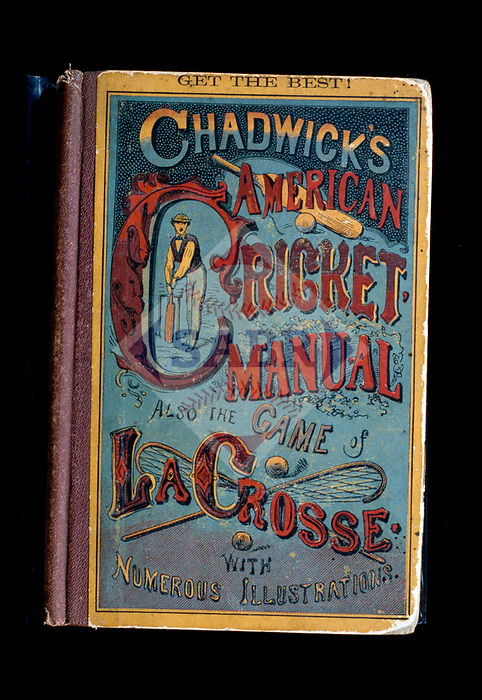 GET THE BEST!
CHADWICK'S
AMERICAN
CRICKET
MANUAL
ALSO THE GAME of
LACROSSE.
WITH
NUMEROUS ILLUSTRATIONS.